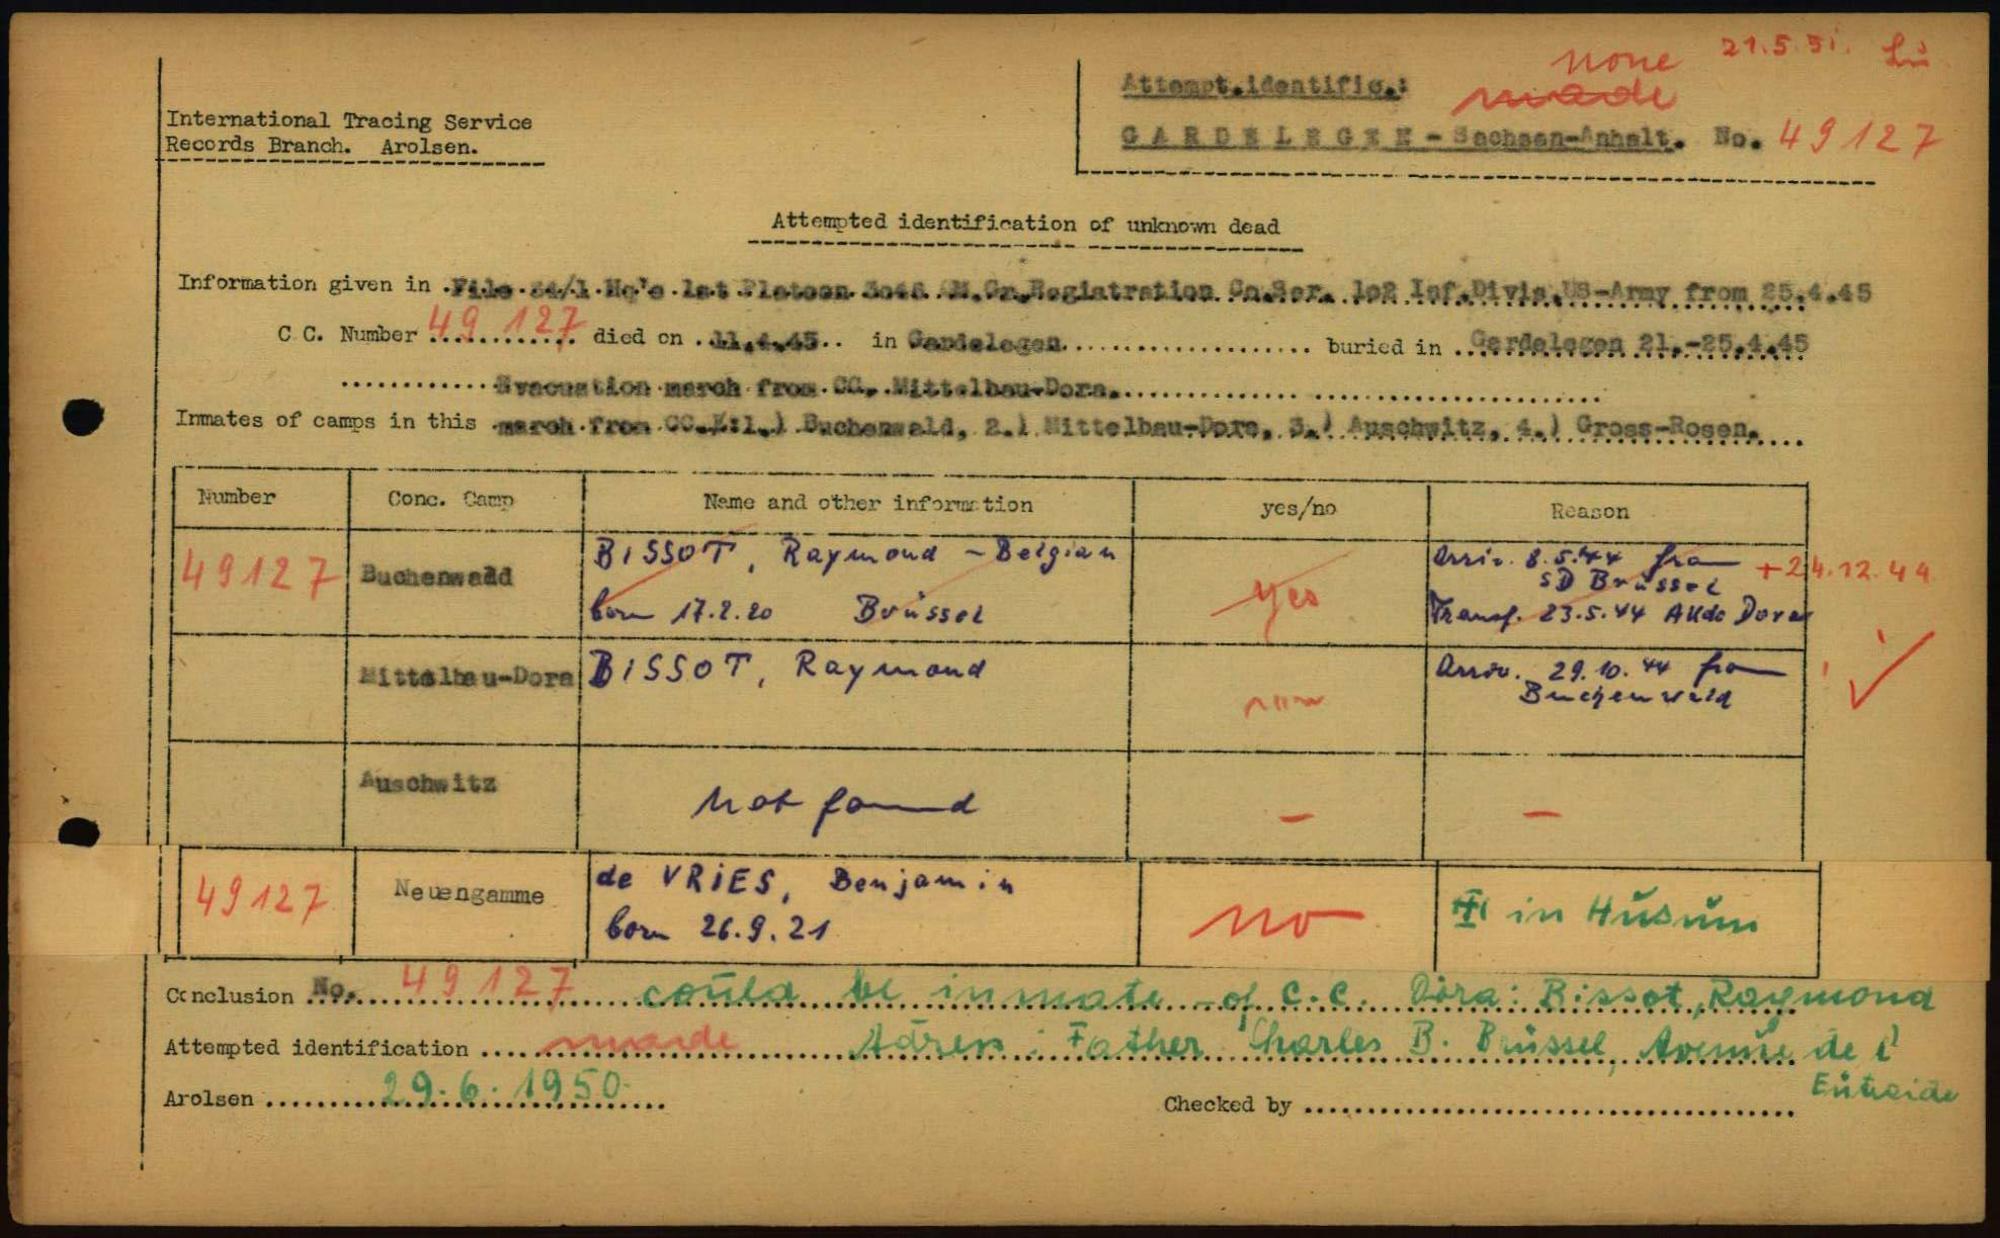 none 21.5.51.
Attempt.identific.: made
International Tracing Service
Records Branch. Arolsen.
GARDELEGEN - Sachsen-Anhalt. No. 49127
Attempted identification of unknown dead
Information given in File 54/1 Hq's 1st Platoon 3046 QM.Gr.Registration Co.Ser. 102 Inf.Divis.US-Army from 25.4.45
C.C. Number 49 127 died on 11.4.45 in Gardelegen buried in Gardelegen 21.-25.4.45
Evacuation march from CC. Mittelbau-Dora.
Inmates of camps in this march from CC.Z:1.) Buchenwald, 2.) Mittelbau-Dora, 3.) Auschwitz, 4.) Gross-Rosen.
Number Conc. Camp Name and other information yes/no Reason
49127 Buchenwald BISSOT, Raymond - Belgian yes Arriv. 8.5.44 from + 24.12.44
SD Brüssel
born 17.2.20 Brüssel Transf. 23.5.44 AKdo Dora
Mittelbau-Dora BISSOT, Raymond Arriv. 29.10.44 from
Buchenwald
Auschwitz not found - -
49127 Neuengamme de VRIES, Benjamin no in Husum
born 26.9.21
Conclusion No. 49127 could be inmate of C.C. Dora: Bissot, Raymond
Attempted identification made Adress: Father Charles B. Brüssel, Avenue de l'
Arolsen 29.6.1950
Checked by